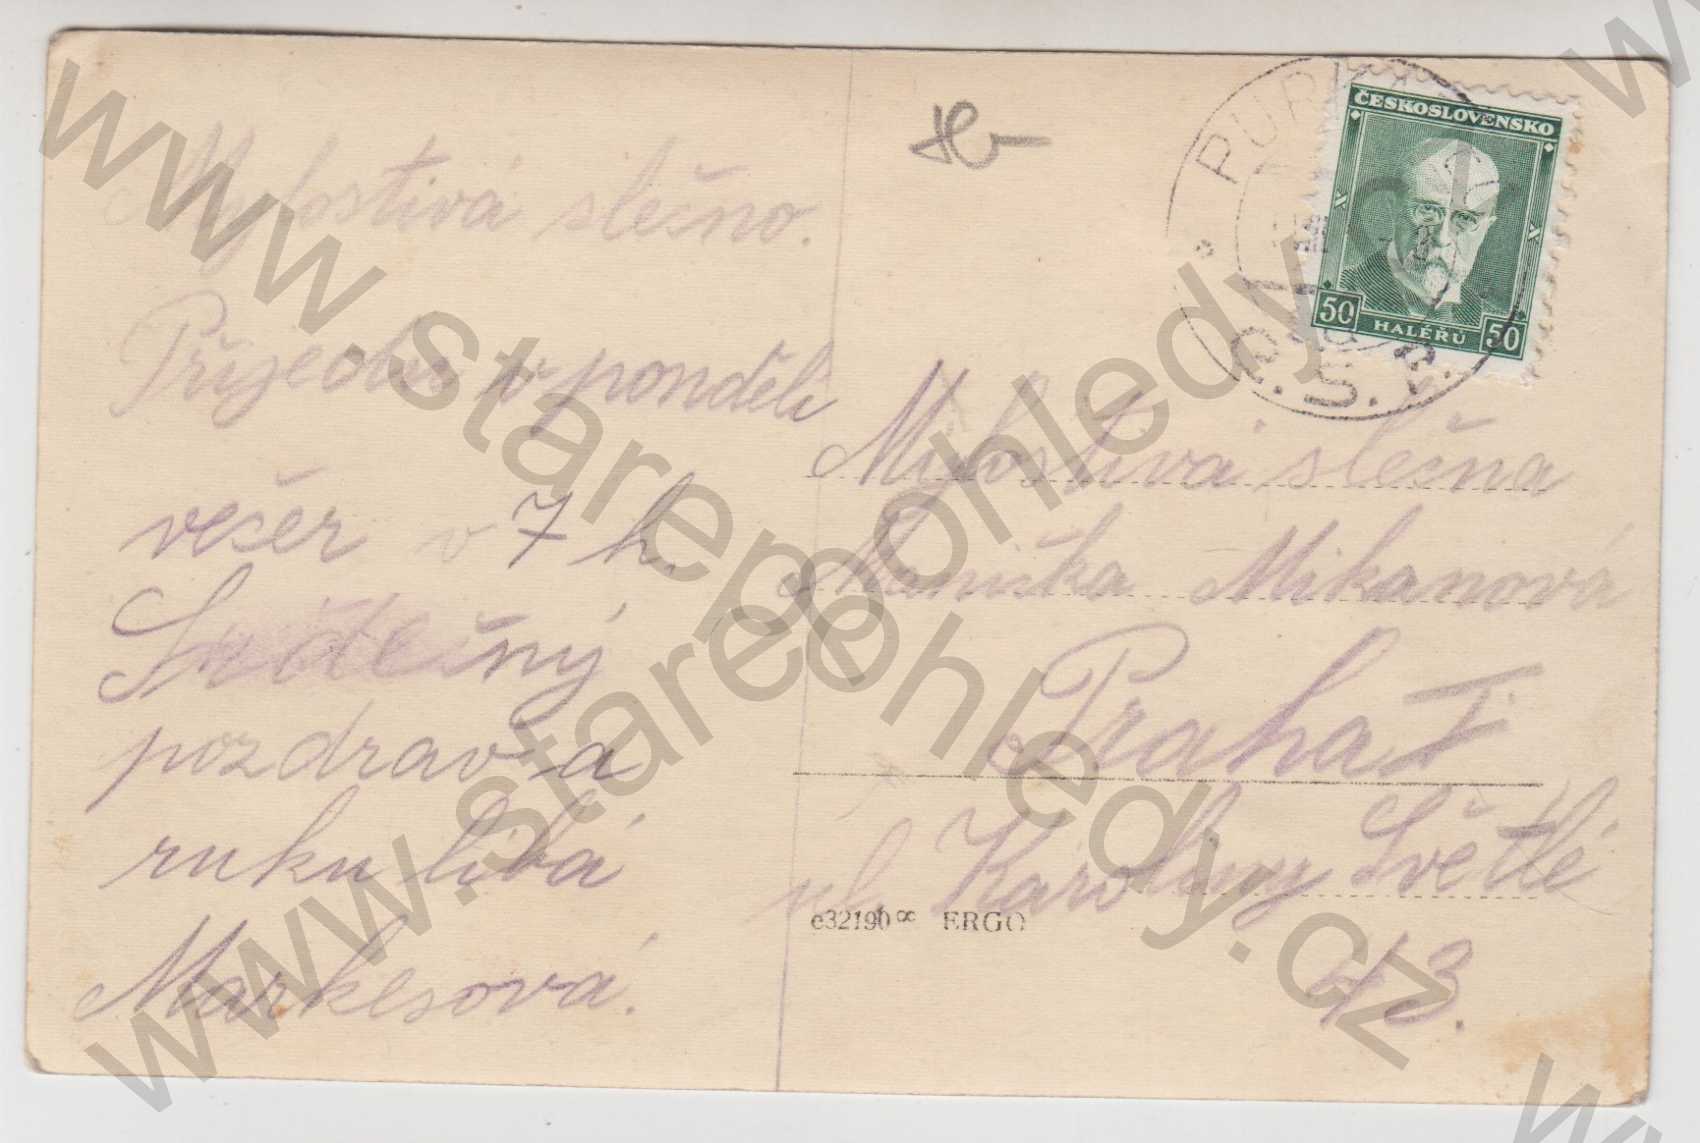 Mylostivá slečno.
Přijedu v pondělí
večer v 7 h.
Srdečný
pozdrav a
ruku líbá
Markesová.
ČESKOSLOVENSKO
50 HALÉŘŮ 50
Mylostivá slečna
Manička Mikanová
Praha I.
ul. Karoliny Světlé
č 3.
e32190 ERGO
www.starepohledy.cz
www.starepohledy.cz